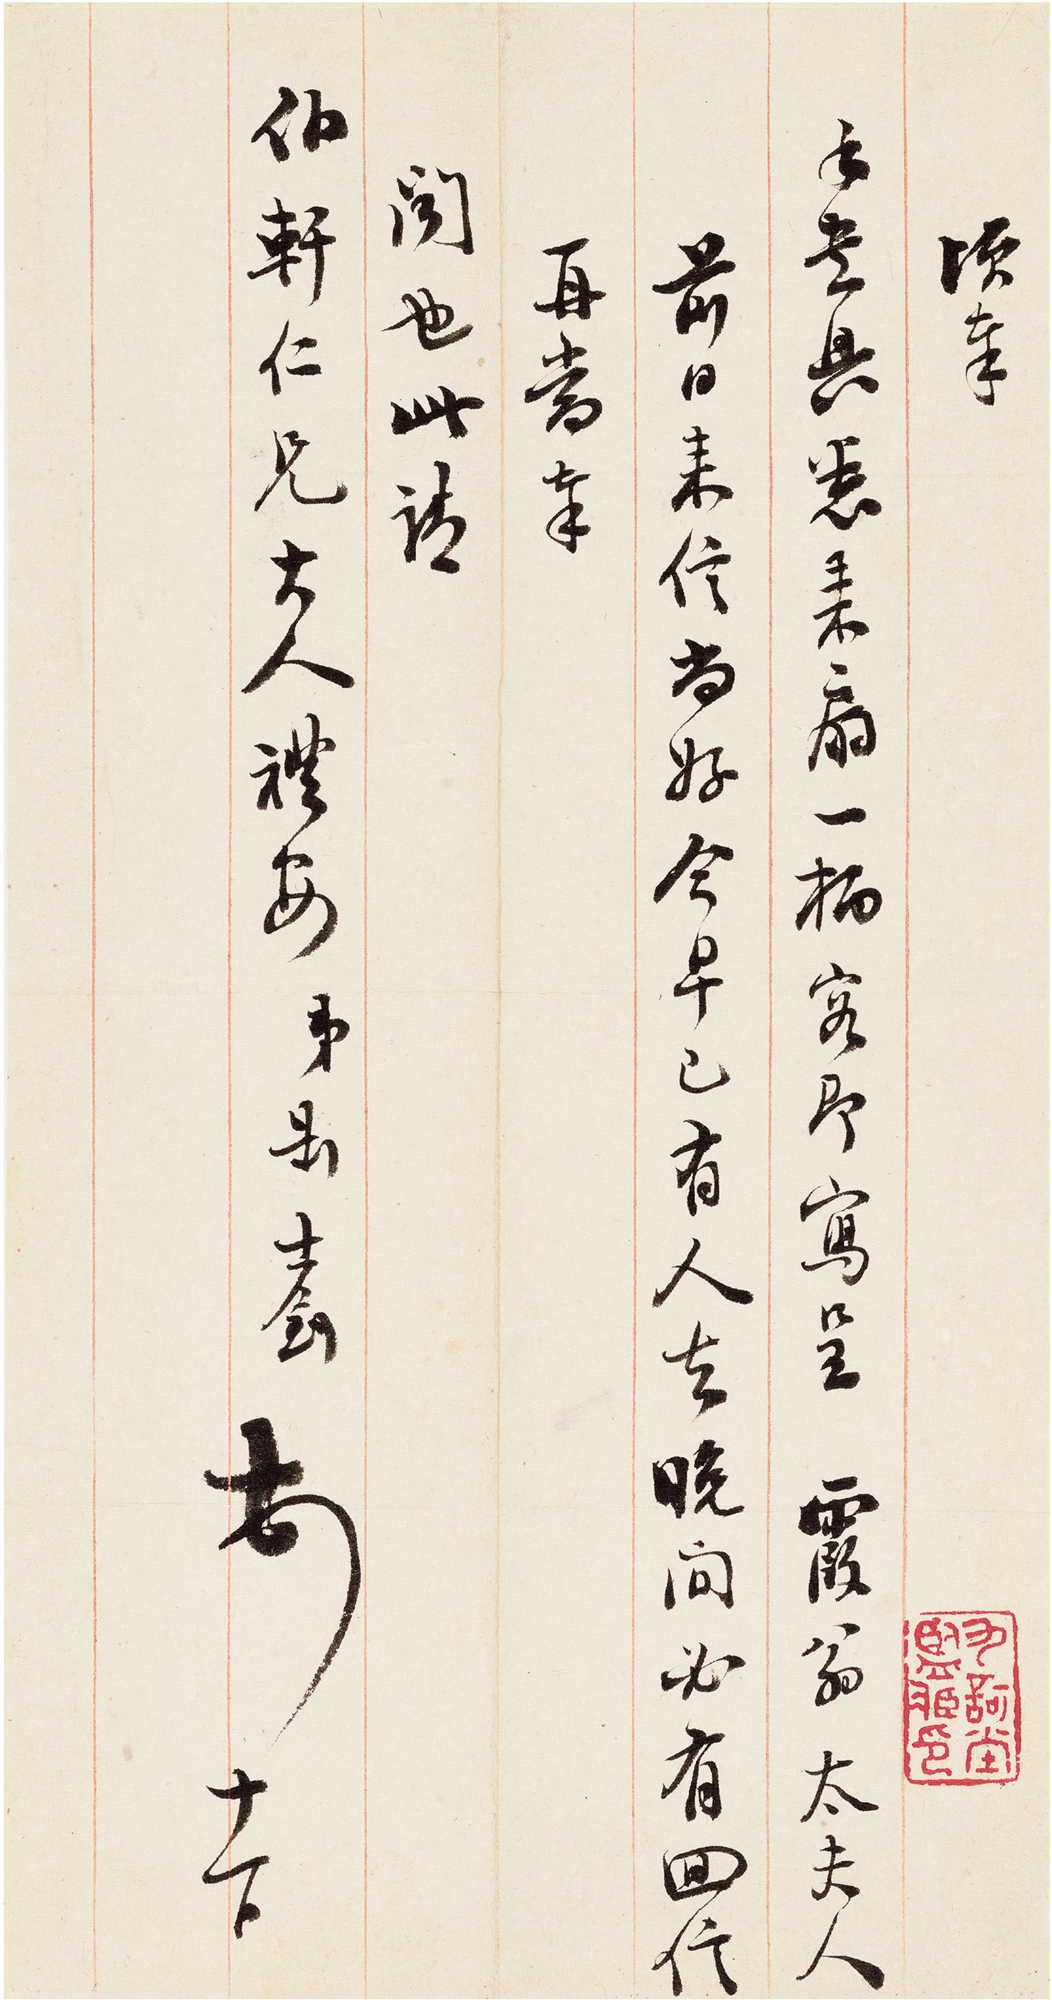 頃奉
手書具悉来扇一柄容即寫呈 霞翁太夫人
前日来信尚好今早已有人去晚間必有回信
再當奉
聞也此請
伯軒仁兄大人禮安 弟
十一日